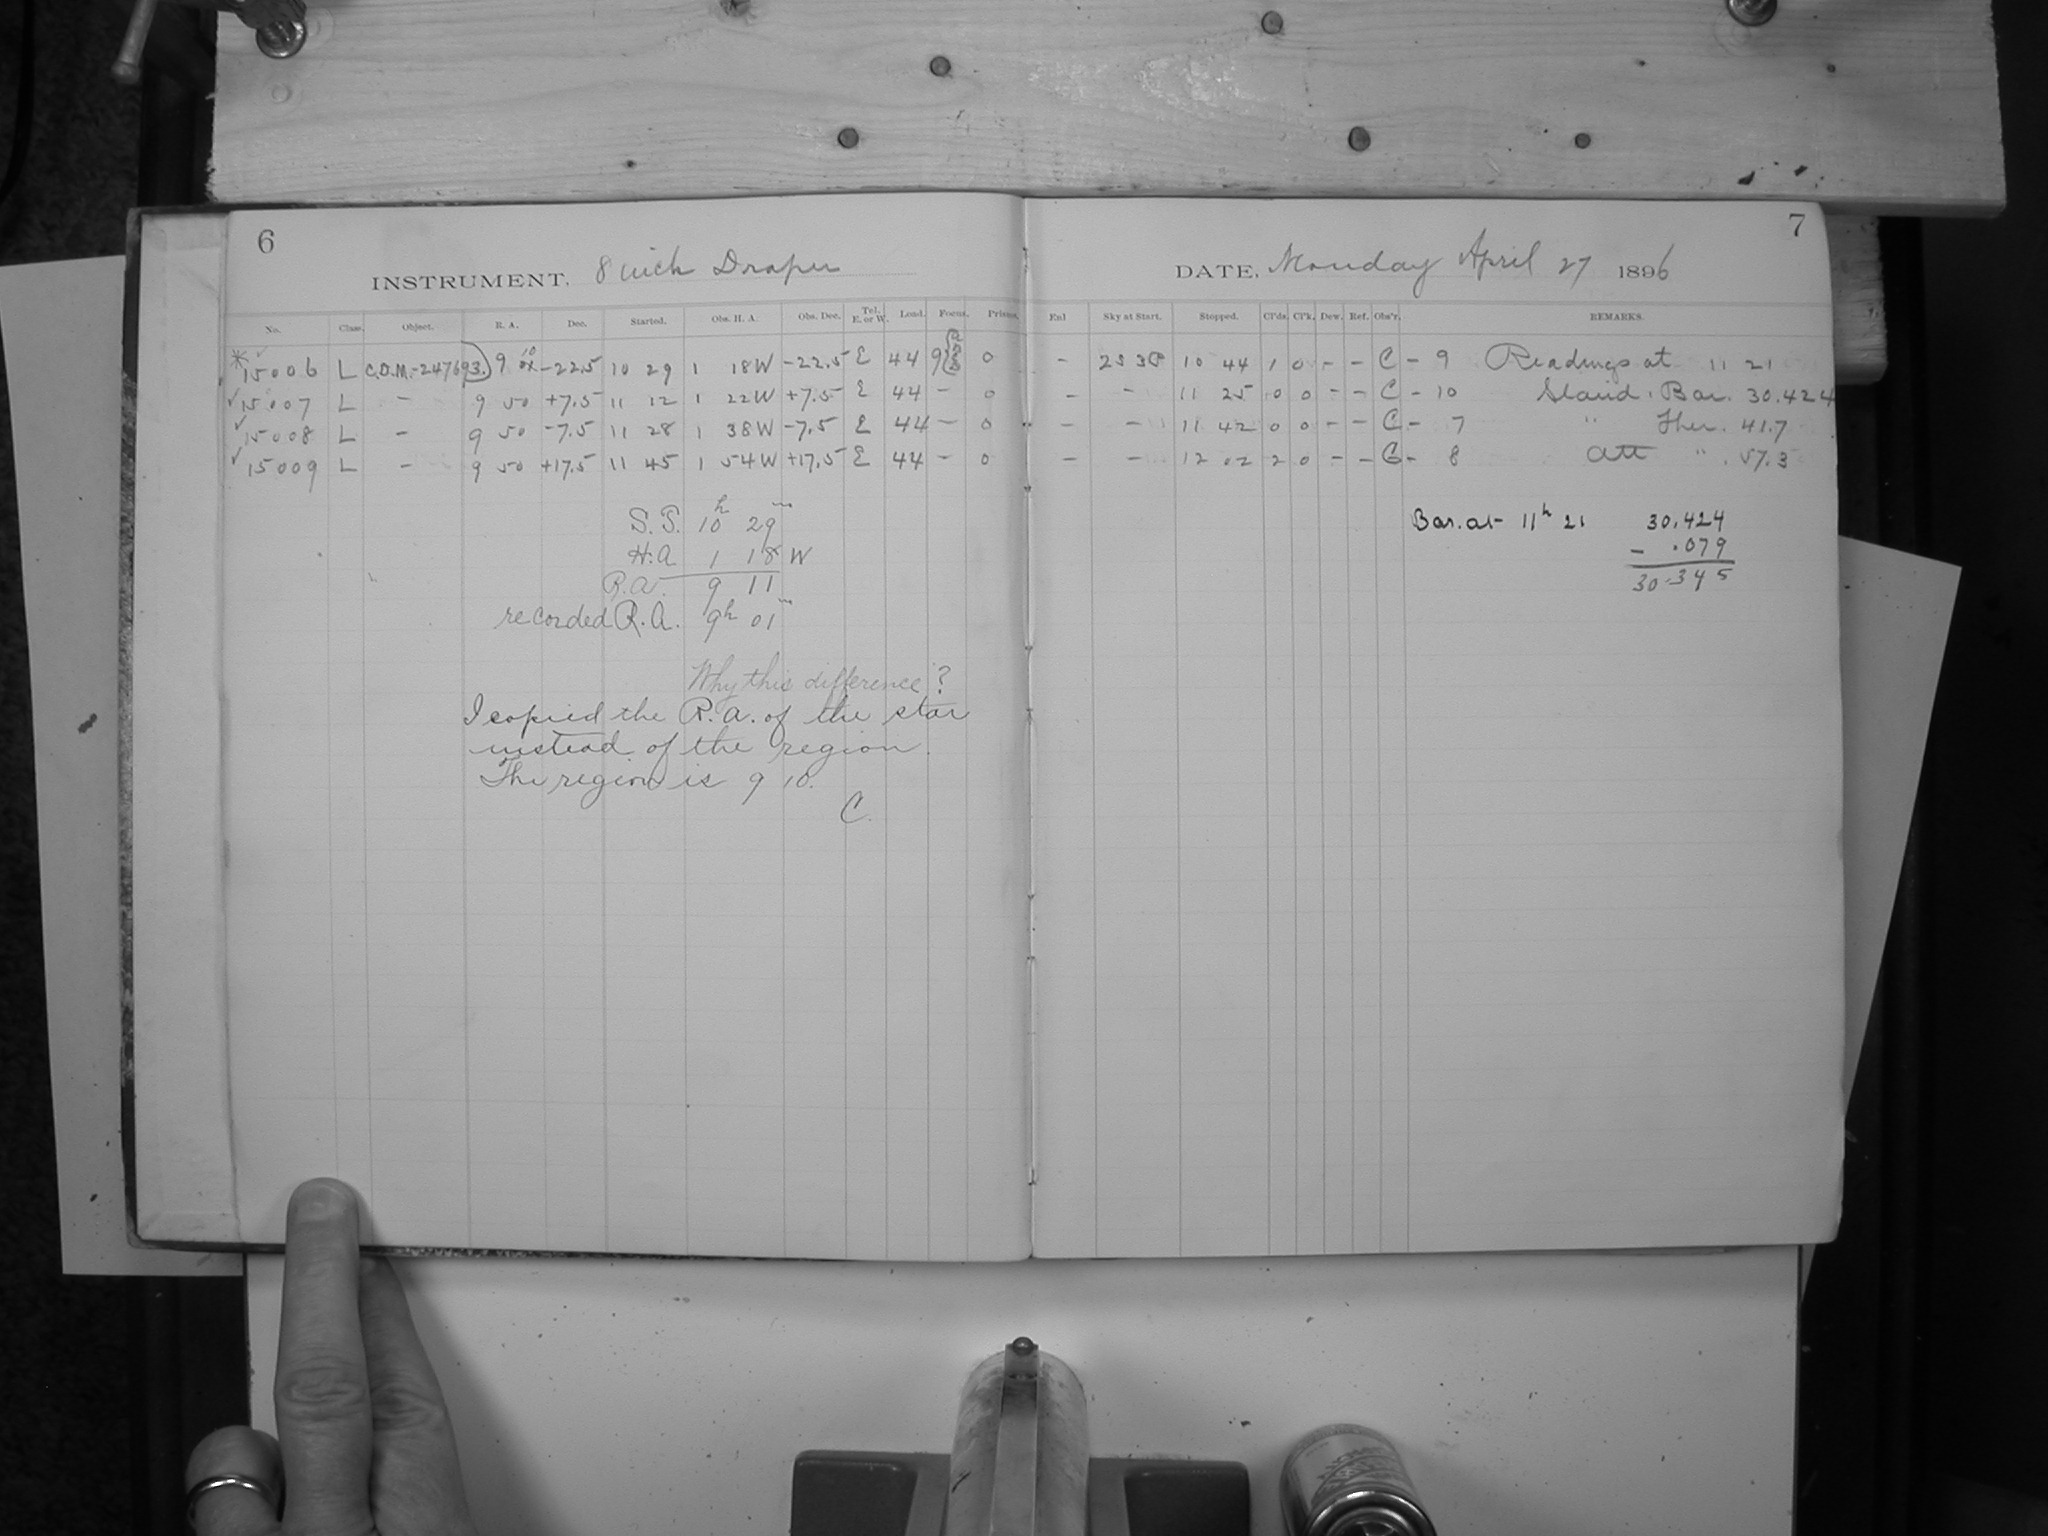 6
INSTRUMENT. 8 inch Draper
No. Class. Object. R. A. Dec. Started. Obs. H. A. Obs. Dec. Tel. E. or W. Load. Focus. Prisms.
* 15006 L C.D.M.-247693. 9 10 -22.5 10 29 1 18W -22.5 E 44 9 0
✓ 15007 L - 9 50 +7.5 11 12 1 22W +7.5 E 44 - 0
✓ 15008 L - 9 50 -7.5 11 28 1 38W -7.5 E 44 - 0
✓ 15009 L - 9 50 +17.5 11 45 1 54W +17.5 E 44 - 0
S.T. 10h 29m
H.A 1 18 W
R.A. 9 11
recorded R.A. 9h 01m
Why this difference?
I copied the R.A. of the star
instead of the region.
The region is 9 10.
C.
7
DATE. Monday April 27 1896
Enl Sky at Start. Stopped. Cl'ds. Cl'k. Dew. Ref. Obs'r. REMARKS.
- 10 44 1 0 - - C - 9 Readings at 11 21
- - 11 25 0 0 - - C - 10 Stand. Bar. 30.424
- - 11 42 0 0 - - C - 7 " Ther. 41.7
- - 12 02 2 0 - - C - 8 Att " . 57.3
Bar. at 11h 21 30.424
- .079
30.345